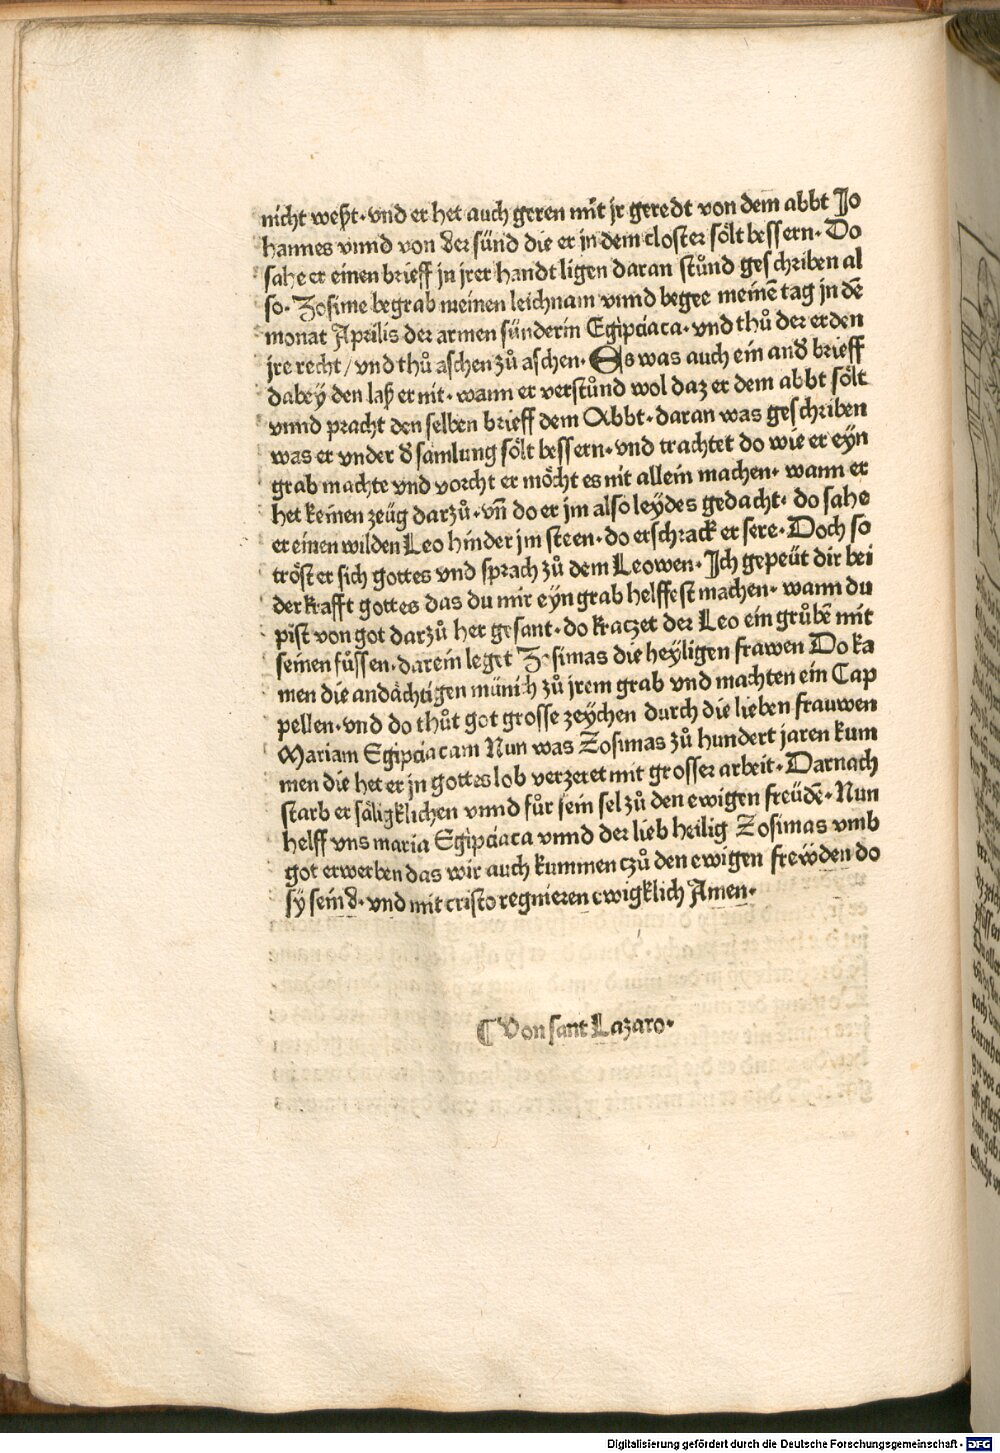 nicht weßt· vnd er het auch geren mit jr geredt von dem abbt Jo
hannes vnnd von der sünd die er in dem closter sölt bessern· Do
sahe er einen brieff jn jrer handt ligen daran stůnd geschriben al
so· Zosime begrab meinen leichnam vnnd begee meinē tag jn dē
monat Aprilis der armen sünderin Egipciaca· vnd thů der erden
jre recht/ vnd thů aschen zů aschen· Es was auch ein and̄ brieff
dabey den laß er nit· wann er verstůnd wol daz er dem abbt sölt
vnnd pracht den selben brieff dem Abbt· daran was geschriben
was er vnder d̄ samlung sölt bessern· vnd trachtet do wie er eyn
grab machte vnd vorcht er möcht es nit allein machen· wann er
het keinen zeüg darzů· vñ do er jm also leydes gedacht· do sahe
er einen wilden Leo hinder jm steen· do erschrack er sere· Doch so
tröst er sich gottes vnd sprach zů dem Leowen· Jch gepeüt dir bei
der krafft gottes das du mir eyn grab helffest machen· wann du
pist von got darzů her gesant· do kraczet der Leo ein grůbē mit
seinen fůssen· darein leget Zosimas die heyligen frawen Do ka
men die andächtigen münich zů jrem grab vnd machten ein Cap
pellen· vnd do thůt got grosse zeychen durch die lieben frauwen
Mariam Egipciacam Nun was Zosimas zů hundert jaren kum
men die het er jn gottes lob verzeret mit grosser arbeit· Darnach
starb er säligklichen vnnd fůr sein sel zů den ewigen freüdē· Nun
helff vns maria Egipciaca vnnd der lieb heilig Zosimas vmb
got erwerben das wir auch kummen czů den ewigen frewden do
sy seind· vnd mit cristo regnieren ewigklich Amen·
¶ Von sant Lazaro·
Digitalisierung gefördert durch die Deutsche Forschungsgemeinschaft - DFG